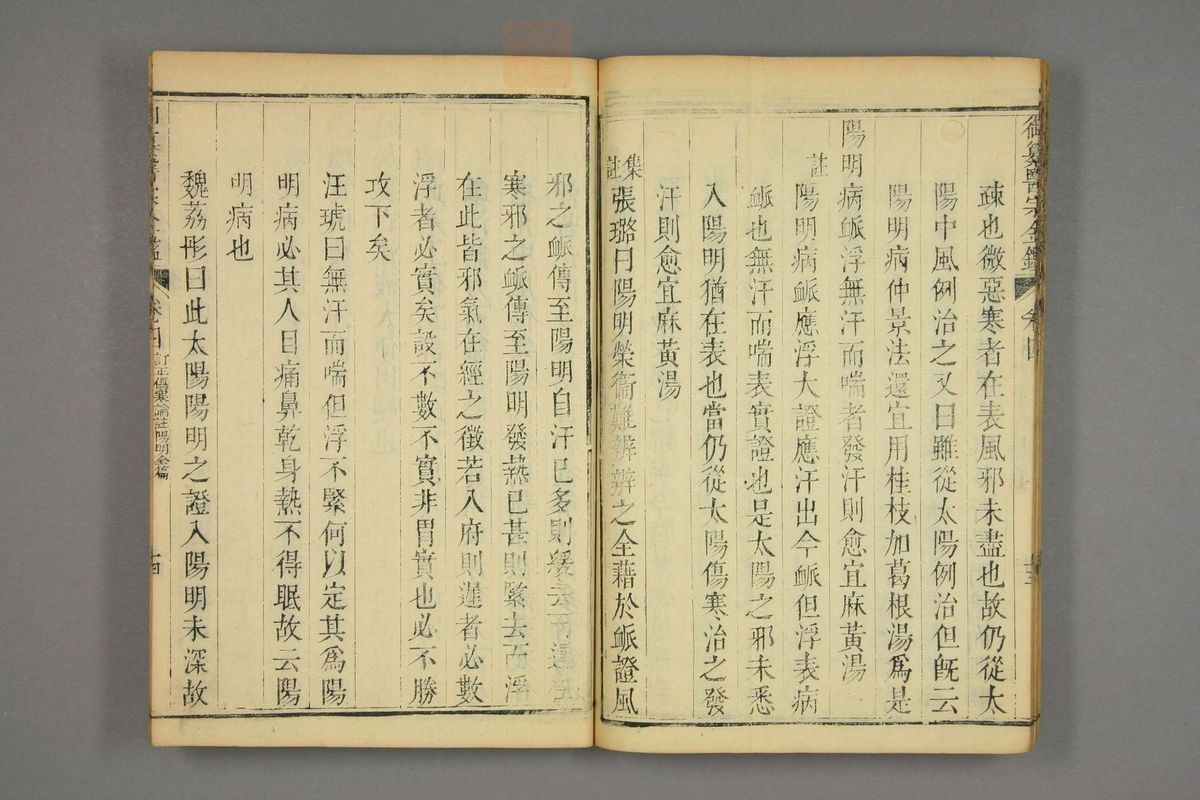 御纂醫宗金鑑 卷四
疎也微惡寒者在表風邪未盡也故仍從太
陽中風例治之又曰雖從太陽例治但旣云
陽明病仲景法還宜用桂枝加葛根湯爲是
陽明病脈浮無汗而喘者發汗則愈宜麻黃湯
註 陽明病脈應浮大證應汗出今脈但浮表病
脈也無汗而喘表實證也是太陽之邪未悉
入陽明猶在表也當仍從太陽傷寒治之發
汗則愈宜麻黃湯
集註 張璐曰陽明榮衞難辨辨之全藉於脈證風
邪之脈傳至陽明自汗已多則緩去而
寒邪之脈傳至陽明發熱已甚則緊去而浮
在此皆邪氣在經之徵若入府則遲者必數
浮者必實矣設不數不實非胃實也必不勝
攻下矣
汪琥曰無汗而喘但浮不緊何以定其爲陽
明病必其人目痛鼻乾身熱不得眠故云陽
明病也
魏荔彤曰此太陽陽明之證入陽明未深故
卷四 訂正傷寒論註陽明全篇 十四